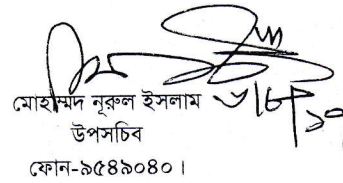 মোহাম্মদ নূরুল ইসলাম
উপসচিব
ফোন-৯৫৪৯০৪০।